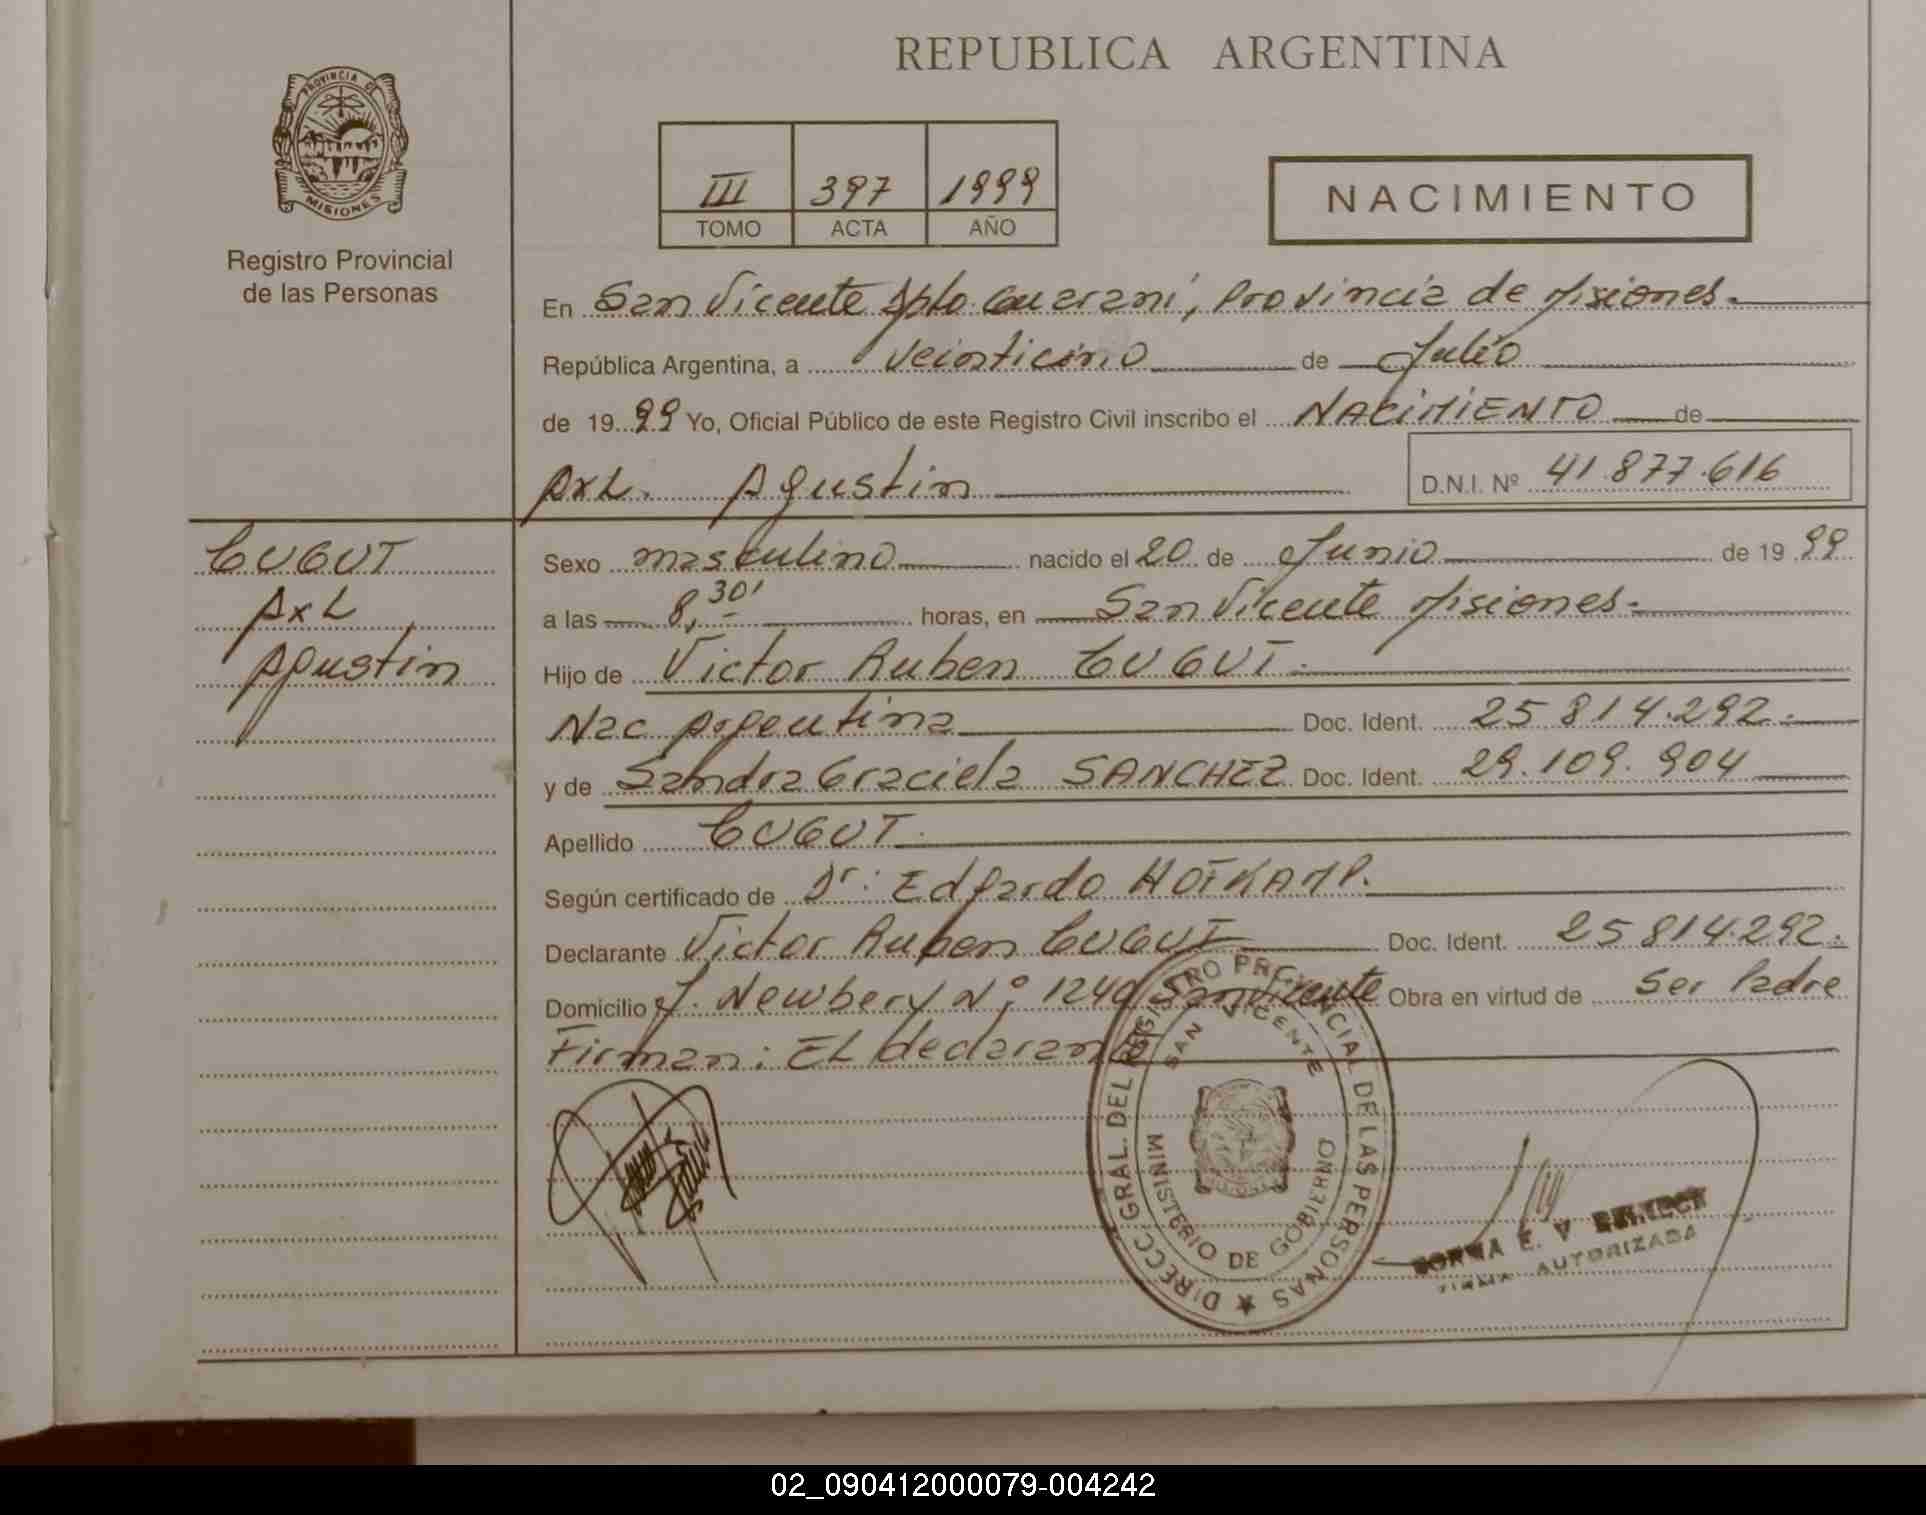 REPUBLICA ARGENTINA
PROVINCIA DE
MISIONES
Registro Provincial
de las Personas
III 397 1999
TOMO ACTA AÑO
NACIMIENTO
En San Vicente Dpto. Guarani, Provincia de Misiones.
República Argentina, a veinticinco de Julio
de 1999 Yo, Oficial Público de este Registro Civil inscribo el NACIMIENTO de
AxL. Agustin
D.N.I. Nº 41.877.616
CUGUT
AxL
Agustin
Sexo masculino nacido el 20 de Junio de 1999
a las 8,30' horas, en San Vicente Misiones.
Hijo de Victor Ruben CUGUT.
Nac Argentina Doc. Ident. 25.814.292.
y de Sandra Graciela SANCHEZ Doc. Ident. 29.109.904
Apellido CUGUT.
Según certificado de Dr: Edgardo HOFKAMP.
Declarante Victor Ruben CUGUT Doc. Ident. 25.814.292.
Domicilio J. Newbery Nº 1240 San Vicente Obra en virtud de Ser Padre
Firman: El declarante
DIRECC. GRAL. DEL REGISTRO PROVINCIAL DE LAS PERSONAS
SAN VICENTE
MINISTERIO DE GOBIERNO
MISIONES
NORMA E. V.
FIRMA AUTORIZADA
02_090412000079-004242